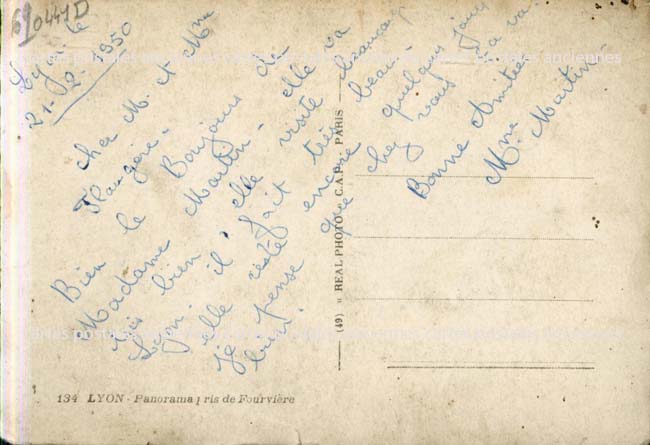 69
0441D
Lyon le
21-2-1950
Cher M. et Mme
Bien le Bonjour de
Madame Martin - elle va
très bien, elle visite beaucoup
Lyon. il fait très beau.
elle reste encore quelques jours
je pense que chez vous sa va
bien.
Bonne Amitiée
Mme Martin
(49) " REAL PHOTO " C.A.P. PARIS
134 LYON - Panorama pris de Fourvière